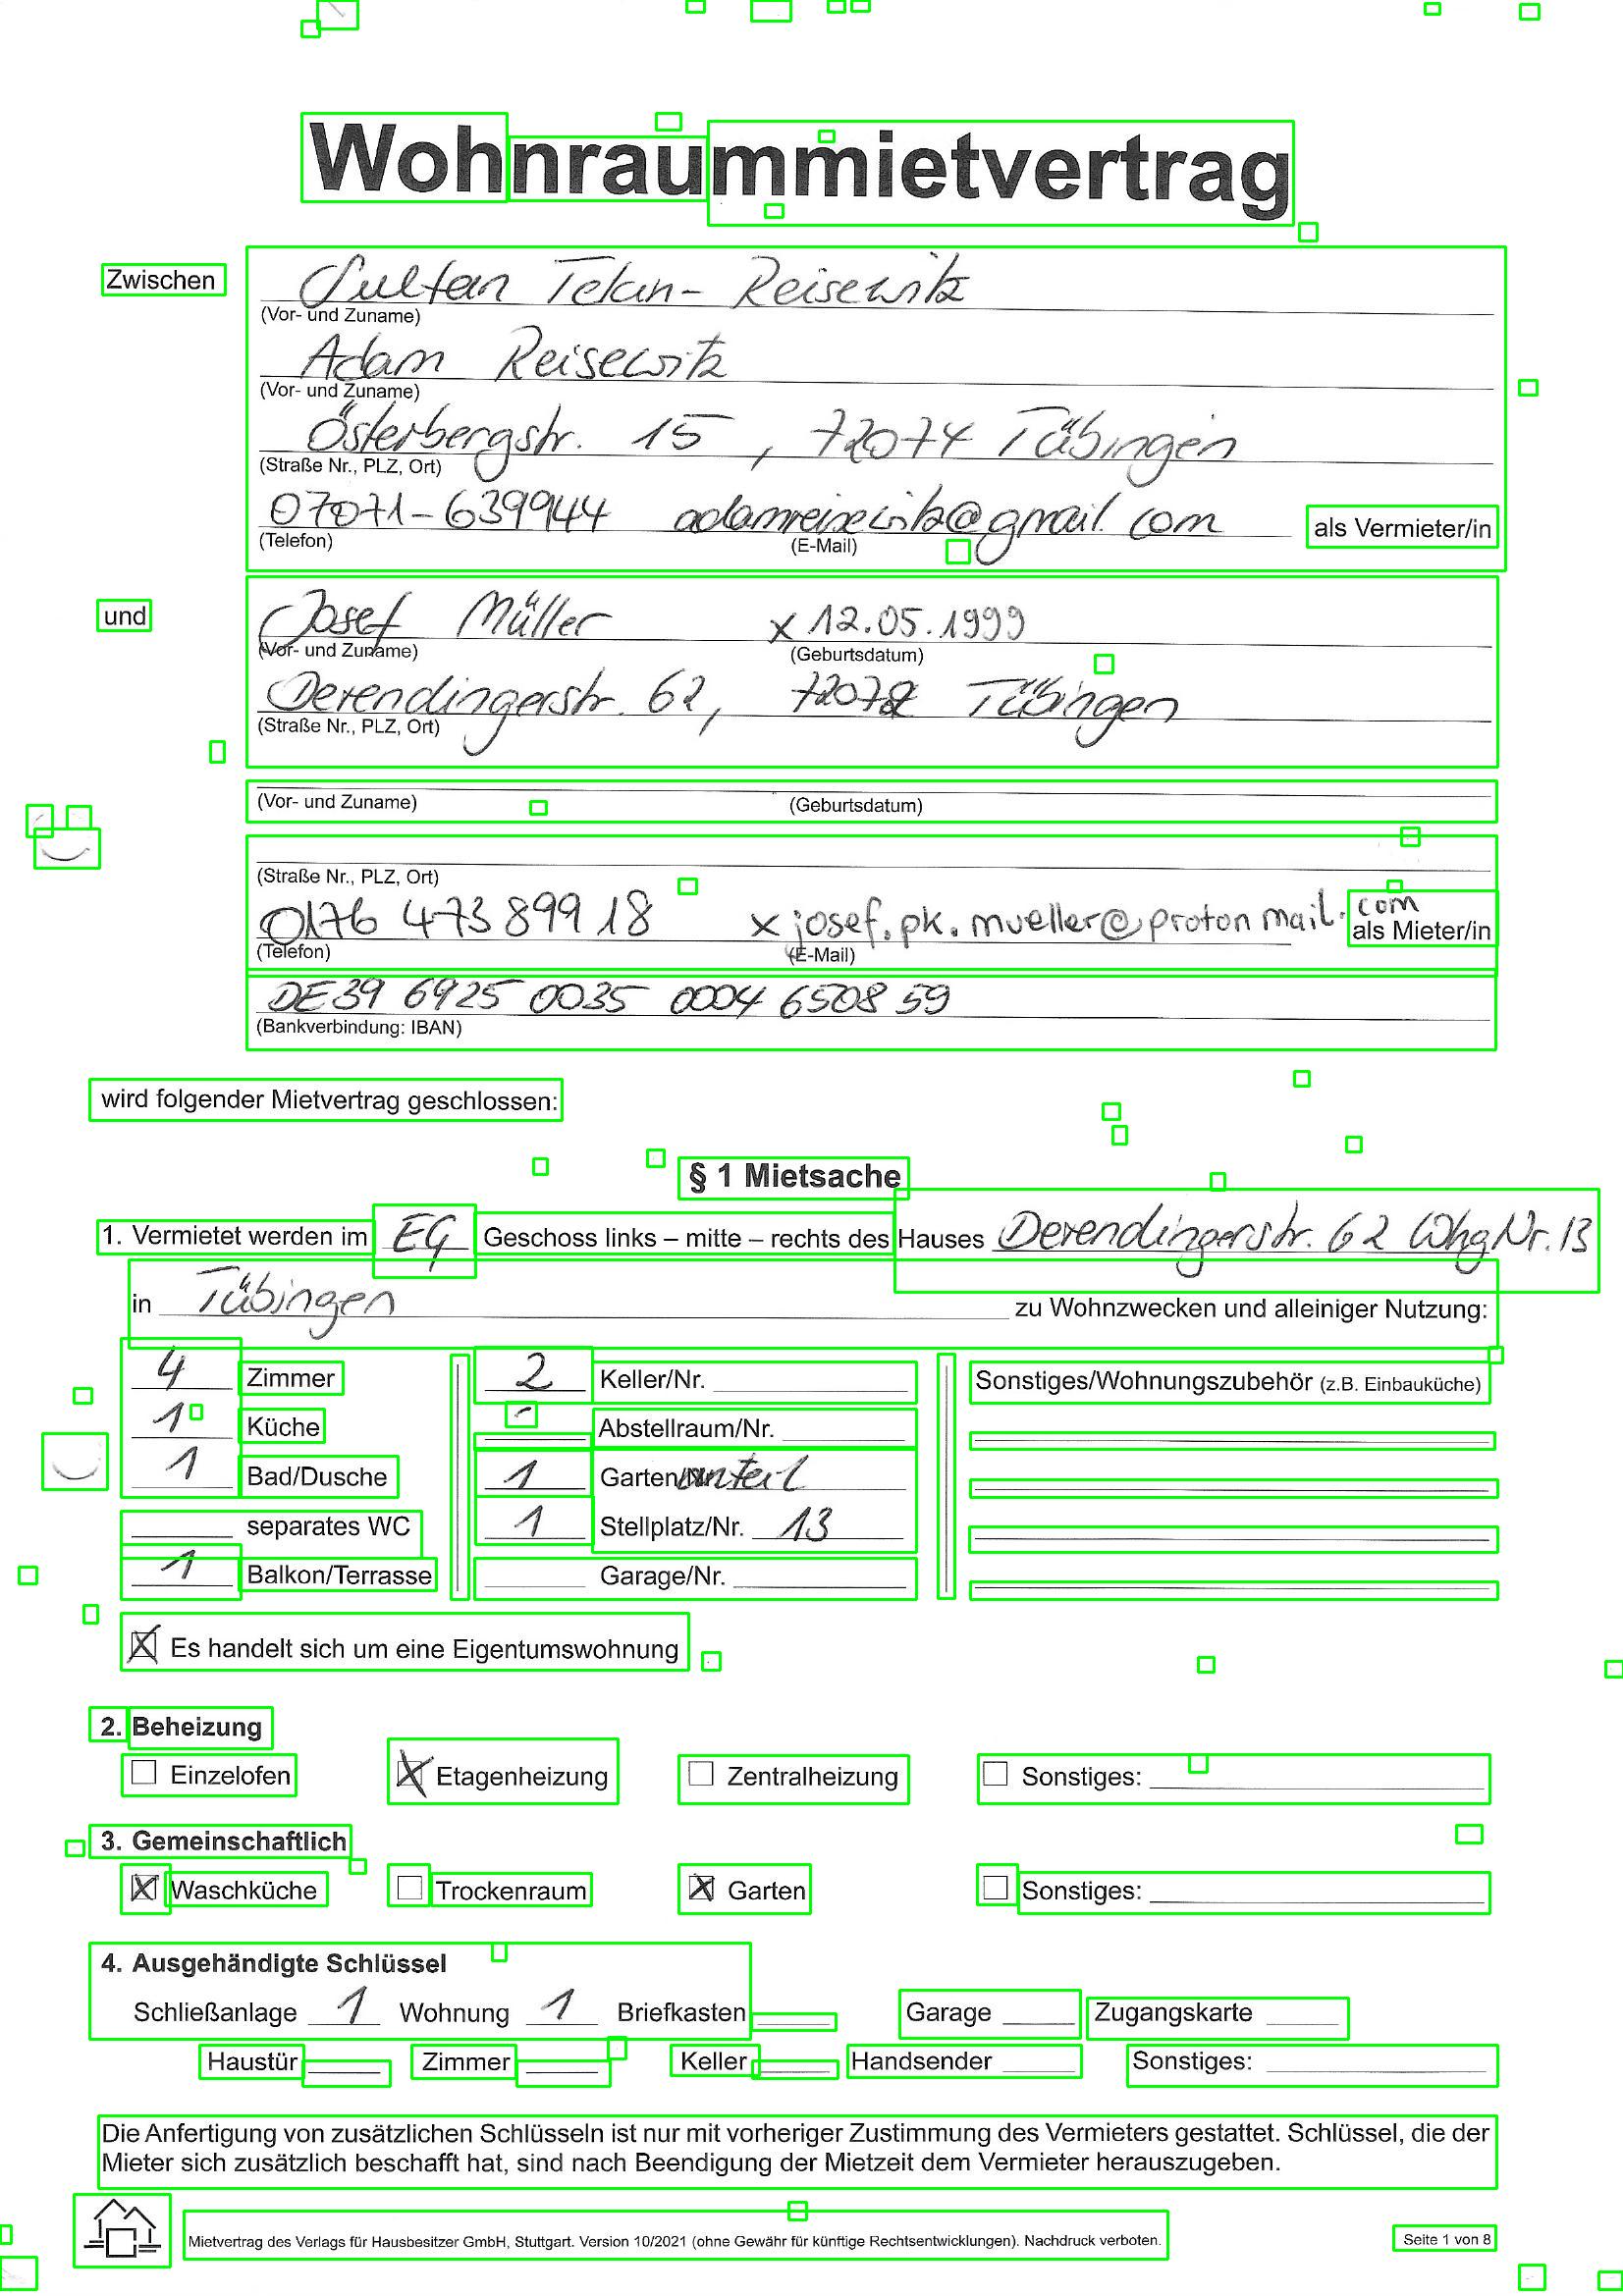 Wohnraummietvertrag
Zwischen Sultan Tekin-Reisewitz
(Vor- und Zuname)
Adam Reisewitz
(Vor- und Zuname)
Österbergstr. 15, 72074 Tübingen
(Straße Nr., PLZ, Ort)
07071-639944 adamreisewitz@gmail.com als Vermieter/in
(Telefon) (E-Mail)
und Josef Müller x 12.05.1999
(Vor- und Zuname) (Geburtsdatum)
Derendingerstr. 62, 72072 Tübingen
(Straße Nr., PLZ, Ort)
(Vor- und Zuname) (Geburtsdatum)
(Straße Nr., PLZ, Ort)
0176 473 899 18 x josef.pk.mueller@protonmail.com
als Mieter/in
(Telefon) (E-Mail)
DE39 6925 0035 0004 6508 59
(Bankverbindung: IBAN)
wird folgender Mietvertrag geschlossen:
§ 1 Mietsache
1. Vermietet werden im EG Geschoss links – mitte – rechts des Hauses Derendingerstr. 62 Whg Nr. 13
in Tübingen zu Wohnzwecken und alleiniger Nutzung:
4 Zimmer 2 Keller/Nr. Sonstiges/Wohnungszubehör (z.B. Einbauküche)
1 Küche - Abstellraum/Nr.
1 Bad/Dusche 1 Garten/Nr. anteil
separates WC 1 Stellplatz/Nr. 13
1 Balkon/Terrasse Garage/Nr.
X Es handelt sich um eine Eigentumswohnung
2. Beheizung
Einzelofen X Etagenheizung Zentralheizung Sonstiges:
3. Gemeinschaftlich
X Waschküche Trockenraum X Garten Sonstiges:
4. Ausgehändigte Schlüssel
Schließanlage 1 Wohnung 1 Briefkasten Garage Zugangskarte
Haustür Zimmer Keller Handsender Sonstiges:
Die Anfertigung von zusätzlichen Schlüsseln ist nur mit vorheriger Zustimmung des Vermieters gestattet. Schlüssel, die der
Mieter sich zusätzlich beschafft hat, sind nach Beendigung der Mietzeit dem Vermieter herauszugeben.
Mietvertrag des Verlags für Hausbesitzer GmbH, Stuttgart. Version 10/2021 (ohne Gewähr für künftige Rechtsentwicklungen). Nachdruck verboten.
Seite 1 von 8